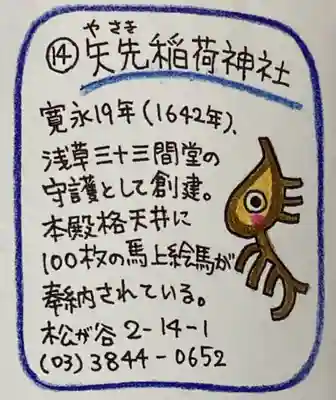 やさき
⑭矢先稲荷神社
寛永19年(1642年)、
浅草三十三間堂の
守護として創建。
本殿格天井に
100枚の馬上絵馬が
奉納されている。
松が谷2-14-1
(03)3844-0652